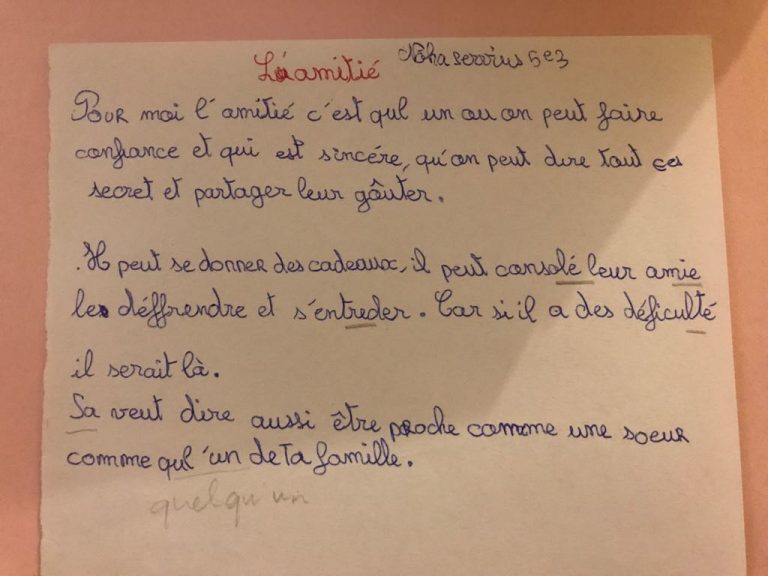 L'amitié Noha servius 5e3
Pour moi l'amitié c'est qul un ou on peut faire
confiance et qui est sincére, qu'on peut dire tout ces
secret et partager leur goûter.
.Il peut se donner des cadeaux, il peut consolé leur amie
les déffrendre et s'entreder. Car si il a des déficulté
il serait là.
Sa veut dire aussi être proche comme une soeur
comme qul'un de ta famille.
quelqu'un